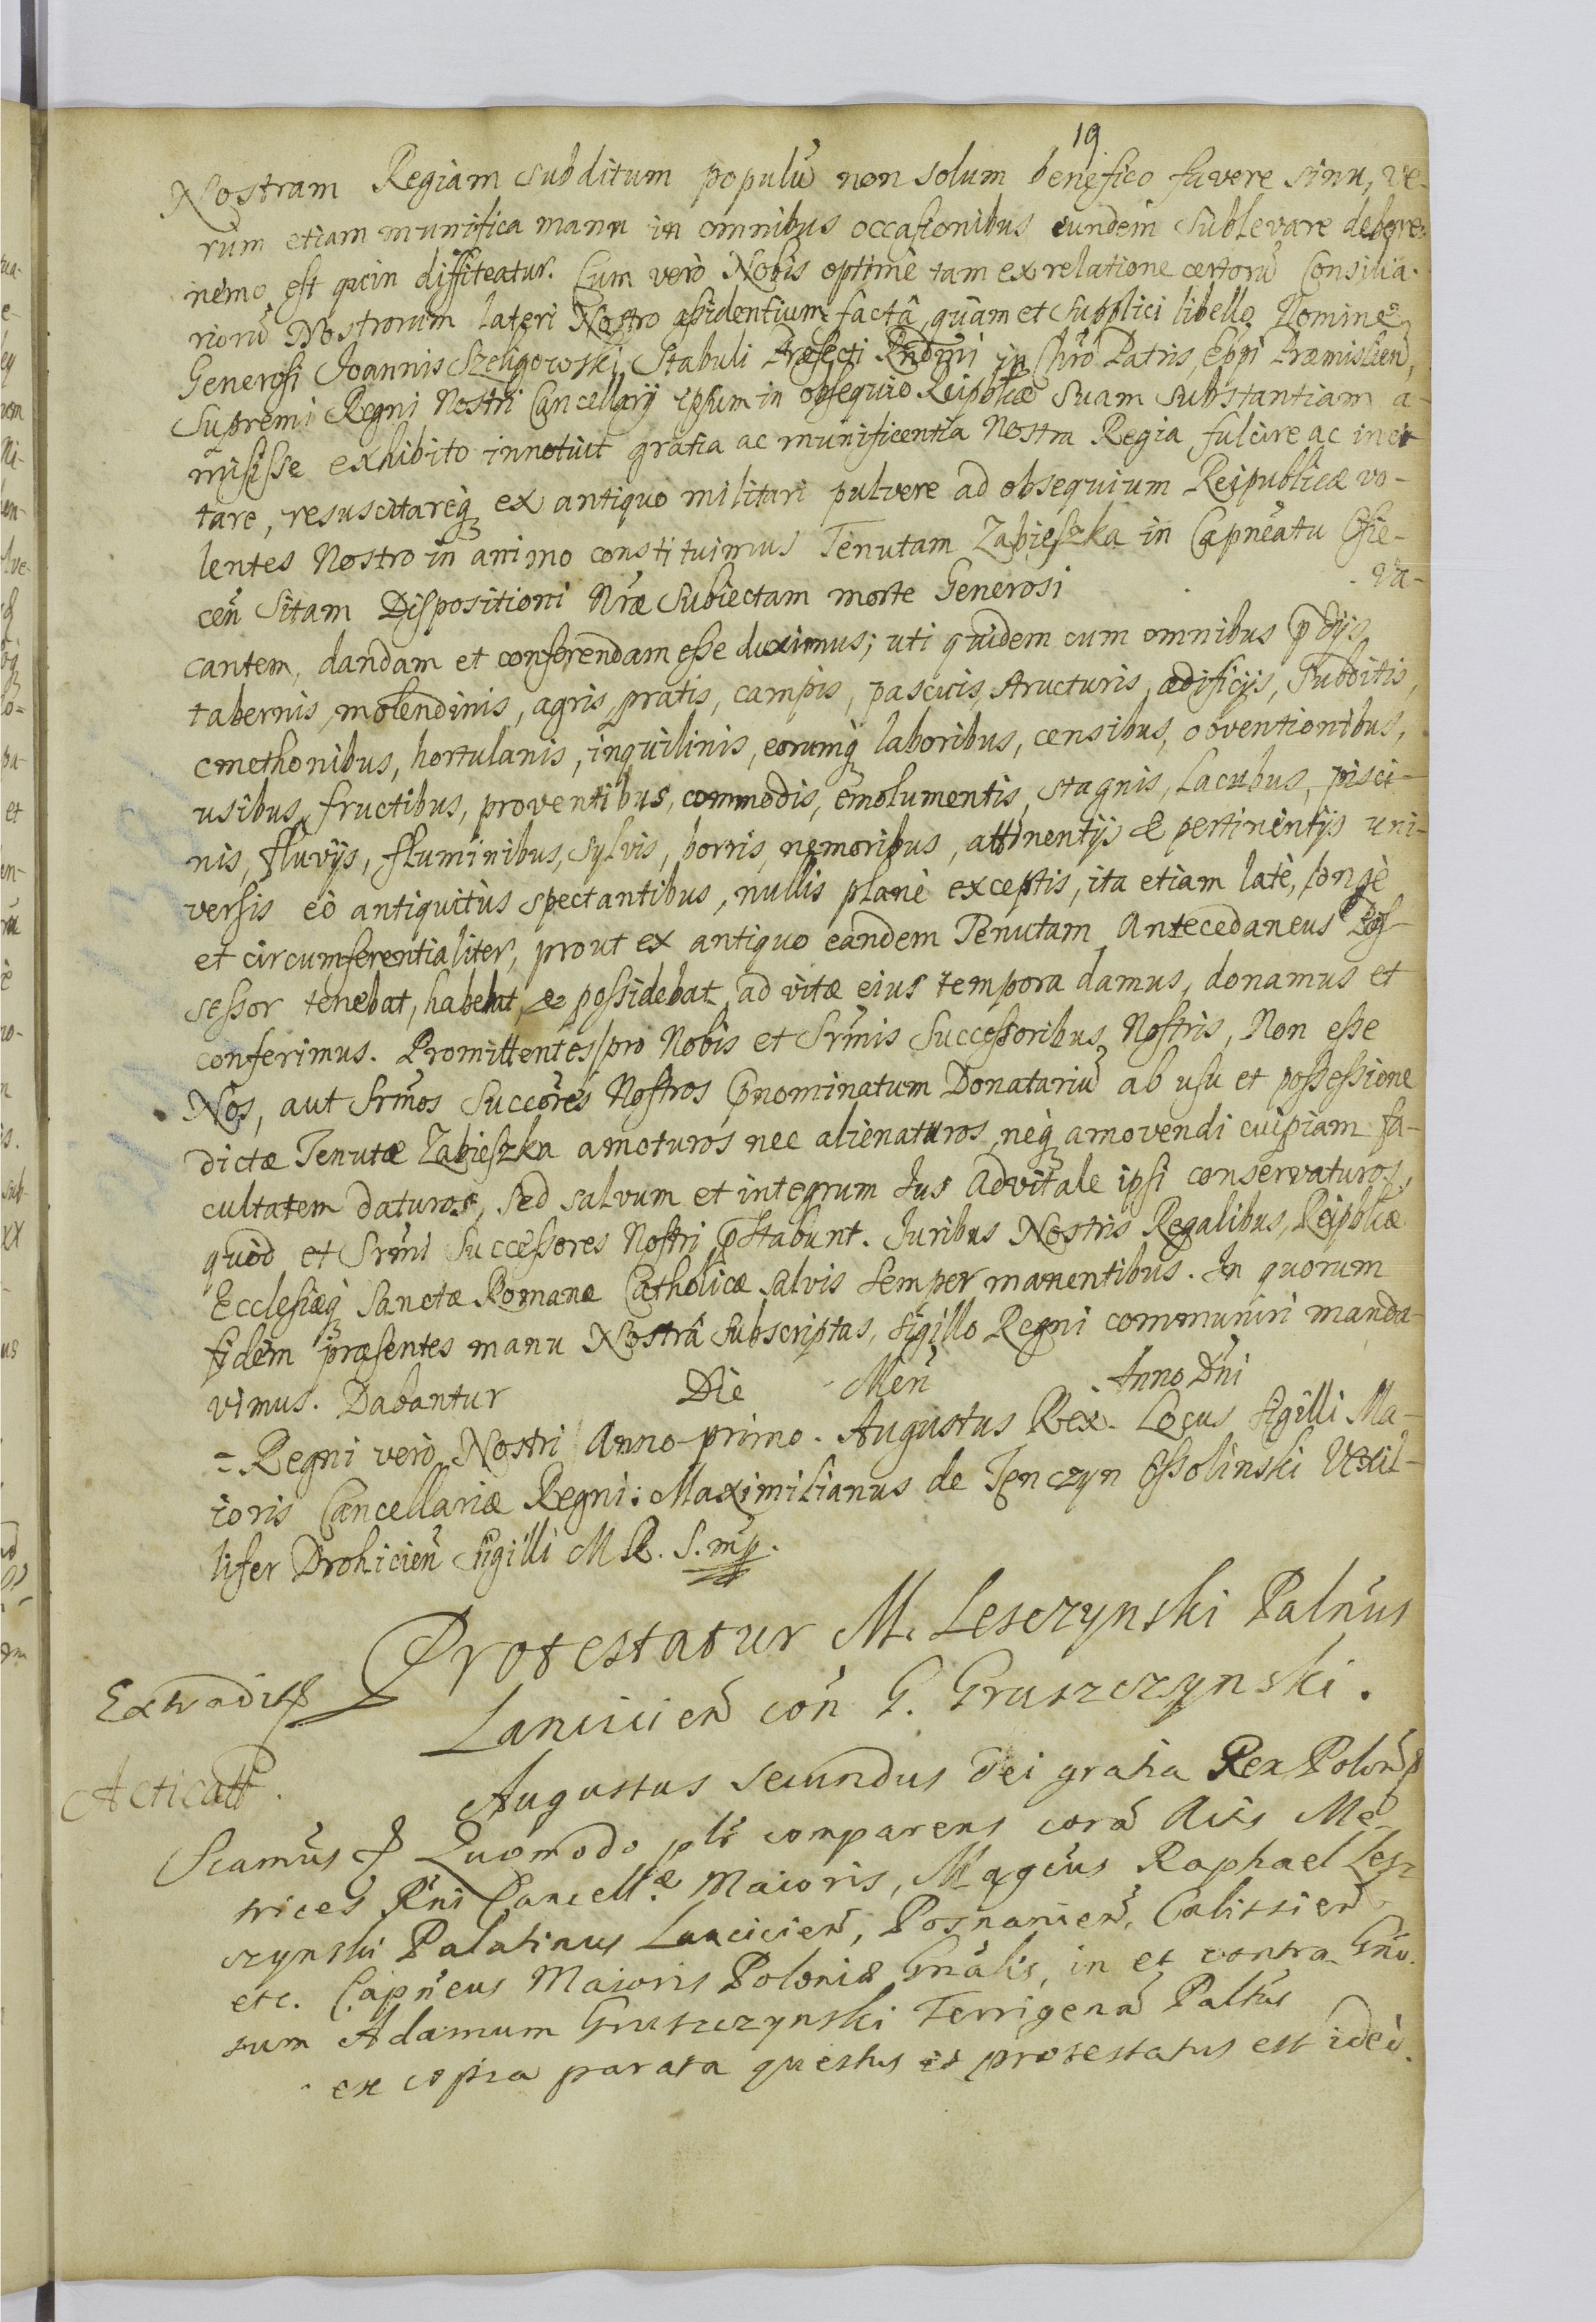 19
Nostram Regiam subditum populũ non solum benefico favere sinu, ve-
rum etiam munifica manu in omnibus occasionibus eundem sublevare debere
nemo est qvin diffiteatur. Cum verò Nobis optimè tam ex relatione certorũ Consilia-
riorũ Nostrorum lateri Nostro assidentium factâ, quàm et supplici libello Nomine
Generosi Joannis Szeligowski Stabuli Præfecti Rndmi in Chrõ Patris, Eppi Præmislien,
Supremi Regni Nostri Cancellarij ipsum in obsequio Reipblicæ suam substantiam a-
misisse exhibito innotuit gratia ac munificentia Nostra Regia fulcire ac inci-
tare, resuscitareq ex antiquo militari pulvere ad obsequium Reipublicæ vo-
lentes Nostro in animo constituimus Tenutam Zabieszka in Capneatu Osie-
cen sitam Dispositioni Nræ subiectam morte Generosi va-
cantem, dandam et conferendam esse duximus; uti quidem cum omnibus pdijs
tabernis, molendinis, agris, pratis, campis, pascuis, structuris, ædificijs, subditis,
cmethonibus, hortulanis, inquilinis, eorumq laboribus, censibus, obventionibus,
usibus, fructibus, proventibus, commodis, emolumentis, stagnis, lacubus, pisci-
nis, fluvijs, fluminibus, sylvis, borris, nemoribus, attinentijs & pertinentijs uni-
versis eò antiquitùs spectantibus, nullis planè exceptis, ita etiam latè, longè
et circumferentialiter, prout ex antiquo eandem Tenutam Antecedaneus Pos-
sessor tenebat, habebat, & possidebat, ad vitæ eius tempora damus, donamus et
conferimus. Promittentes pro Nobis et Srmis Successoribus Nostris, Non esse
Nos, aut Srmos Succores Nostros pnominatum Donatariũ ab usu et possessione
dictæ Tenutæ Zabieszka amoturos nec alienaturos, neq amovendi cuipiam fa-
cultatem daturos, sed salvum et integrum Jus advitale ipsi conservaturos,
quòd et Srmi Successores Nostri pstabunt. Juribus Nostris Regalibus, Reipblicæ
Ecclesiæq Sanctæ Romanæ Catholicæ salvis semper manentibus. In quorum
fidem præsentes manu Nostrâ subscriptas, sigillo Regni communiri manda-
vimus. Dabantur Die Men Anno Dni
= Regni verò Nostri Anno primo. Augustus Rex. Locus sigilli Ma-
ioris Cancellariæ Regni: Maximilianus de Tenczyn Ossolinski Vexil-
lifer Drohicien Sigilli M R. S. mp.
Protestatur M. Lesczynski Palnus
Extradit
Lancicien con G. Gruszczynski.
Acticatt.
Augustus Secundus Dei gratia Rex Polon
Scamus Quomodo plr comparens corã Actis Me-
trices Rni Cancellæ Maioris, Magcus Raphael Lesz
czynski Palatinus Lancicien, Posnanien, Calissien
etc. Capneus Maioris Poloniæ Gnalis, in et contra Gno-
sum Adamum Gruszczynski Terrigenã Paltus
ex copia parata questus et protestatus est ideò.